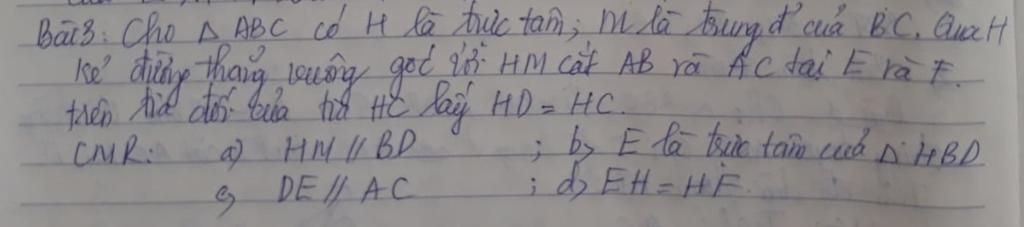 Bài 3: Cho △ ABC có H là trực tâm; M là trung đ' của BC. Qua H
kẻ đường thẳng vuông góc với HM cắt AB và AC tại E và F.
trên tia đối của tia HC lấy HD = HC.
CMR: a) HM // BD ; b) E là trực tâm của △ HBD
c) DE // AC ; d) EH = HF.